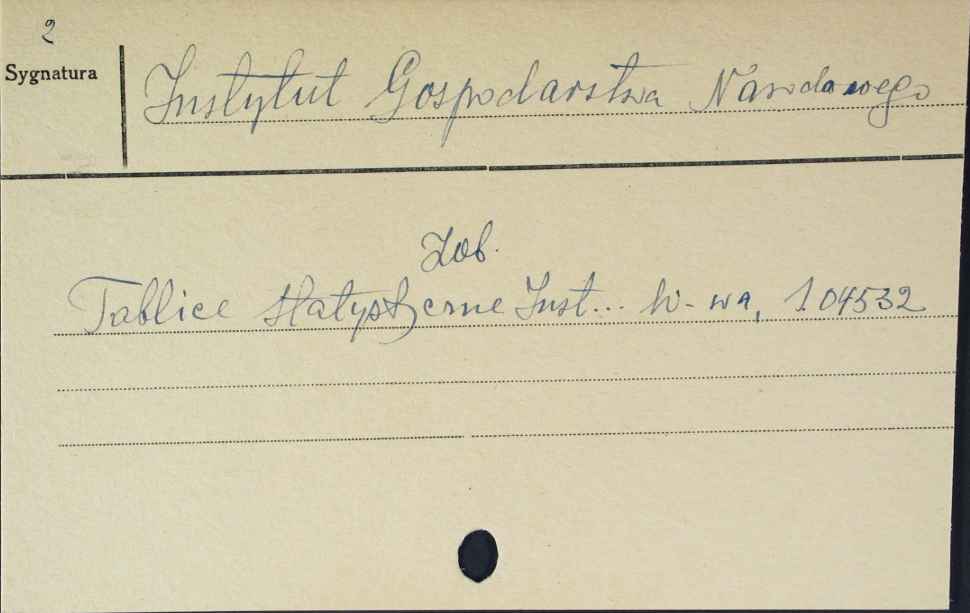 2
Sygnatura
Instytut Gospodarstwa Narodowego
Zob.
Tablice statystyczne Inst... W-wa, 104532